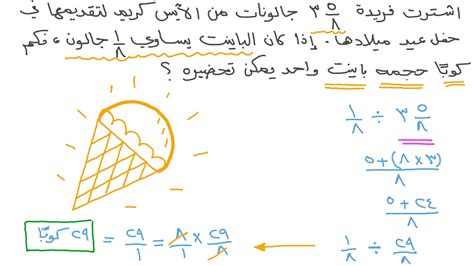 اشترت فريدة ٣ ٥/٨ جالونات من الآيس كريم لتقديمها في
حفل عيد ميلادها. إذا كان الباينت يساوي ١/٨ جالون، فكم
كوبًا حجمه باينت واحد يمكن تحضيره؟
٣ ٥/٨ ÷ ١/٨
(٣×٨)+٥/٨
٢٤+٥/٨
٢٩/٨ ÷ ١/٨
٢٩/٨ × ٨/١ = ٢٩/١ = ٢٩ كوبًا